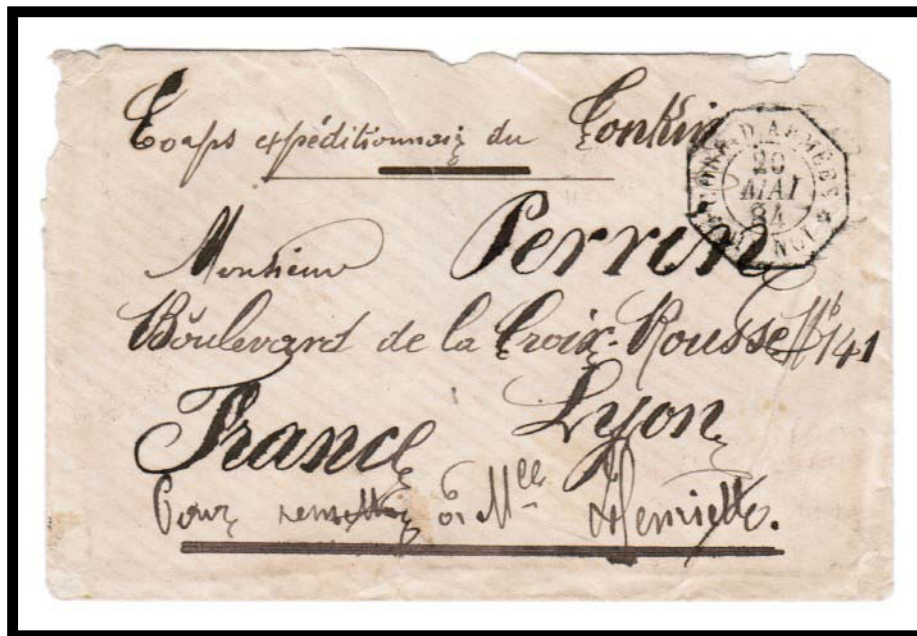 Corps expéditionnair du Tonkin
CORR. D. ARMÉES
20
MAI
84
HANOI
Monsieur Perron
Boulevard de la Croix-Rousse Nº 141
France Lyon
Pour remettre à Mlle Henriette.